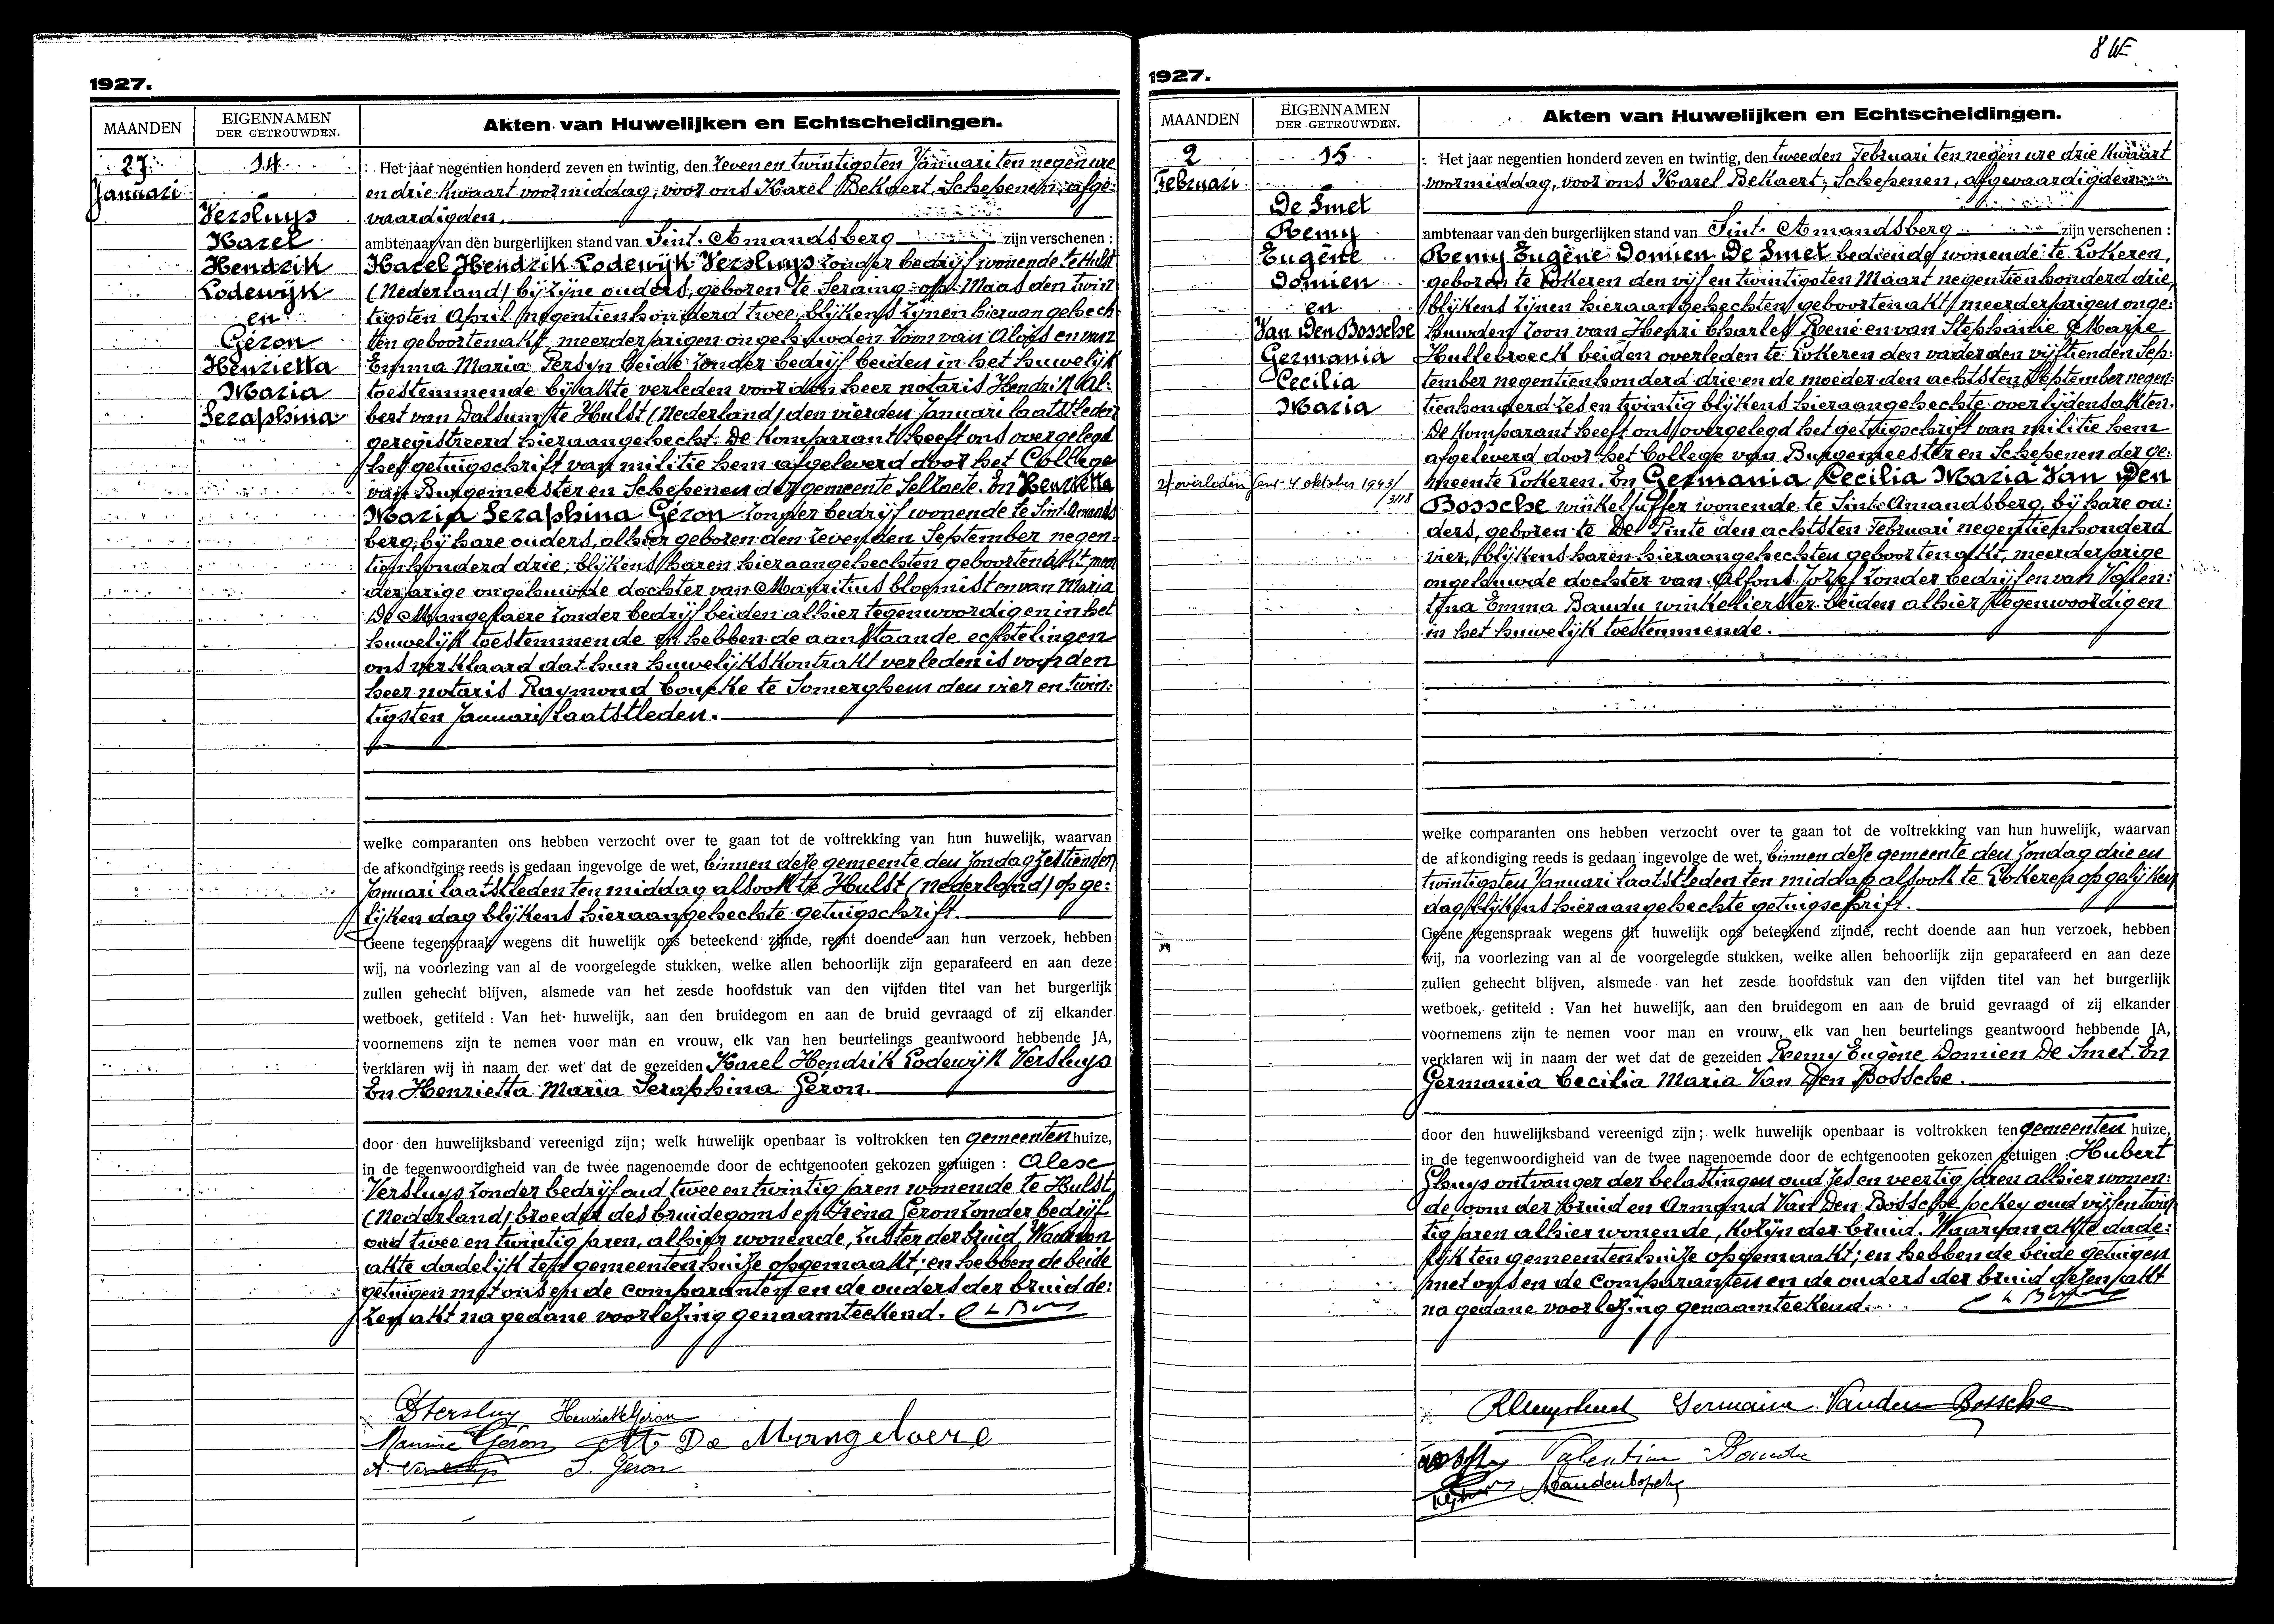 8 W
1927.
MAANDEN
EIGENNAMEN
DER GETROUWDEN.
Akten van Huwelijken en Echtscheidingen.
27
Januari
14
Versluys
Karel
Hendrik
Lodewijk
en
Géron
Henrietta
Maria
Seraphina
Het jaar negentien honderd zeven en twintig, den zeven en twintigsten Januari ten negen ure
en drie kwaart voormiddag, voor ons Karel Bekaert, Schepenen, afge:
vaardigden.
ambtenaar van den burgerlijken stand van Sint-Amandsberg zijn verschenen :
Karel Hendrik Lodewijk Versluys zonder bedrijf wonende te Hulst
(Nederland) bij zijne ouders, geboren te Seraing-op-Maas den twin
tigsten April negentienhonderd twee, blijkens zijnen hieraangehech-
ten geboortenakt, meerderjarigen ongehuwden zoon van Aloijs en van
Emma Maria Persyn beide zonder bedrijf beiden in het huwelijk
toestemmende bij akte verleden voor den heer notaris Hendrik Al:
bert van Dalsum te Hulst (Nederland) den vierden Januari laatstleden
geregistreerd hieraangehecht. De komparant heeft ons overgelegd
het getuigschrift van militie hem afgeleverd door het College
van Burgemeester en Schepenen der gemeente Selzaete. En Henrietta
Maria Seraphina Géron zonder bedrijf wonende te Sint-Amands
berg, bij hare ouders, alhier geboren den zevenden September negen-
tienhonderd drie, blijkens haren hieraangehechten geboortenakt, meer
derjarige ongehuwde dochter van Mauritius bloemist en van Maria
De Mangelaere zonder bedrijf beiden alhier tegenwoordig en in het
huwelijk toestemmende en hebben de aanstaande echtelingen
ons verklaard dat hun huwelijkskontrakt verleden is voor den
heer notaris Raymond Coucke te Somerghem den vier en twin:
tigsten Januari laatstleden.
welke comparanten ons hebben verzocht over te gaan tot de voltrekking van hun huwelijk, waarvan
de afkondiging reeds is gedaan ingevolge de wet, binnen deze gemeente den Zondag zestienden
Januari laatstleden ten middag alsook te Hulst (Nederland) op ge:
lijken dag blijkens hieraangehechte getuigschrift.
Geene tegenspraak wegens dit huwelijk ons beteekend zijnde, recht doende aan hun verzoek, hebben
wij, na voorlezing van al de voorgelegde stukken, welke allen behoorlijk zijn geparafeerd en aan deze
zullen gehecht blijven, alsmede van het zesde hoofdstuk van den vijfden titel van het burgerlijk
wetboek, getiteld : Van het huwelijk, aan den bruidegom en aan de bruid gevraagd of zij elkander
voornemens zijn te nemen voor man en vrouw, elk van hen beurtelings geantwoord hebbende JA,
verklaren wij in naam der wet dat de gezeiden Karel Hendrik Lodewijk Versluys
En Henrietta Maria Seraphina Géron.
door den huwelijksband vereenigd zijn; welk huwelijk openbaar is voltrokken ten gemeentenhuize,
in de tegenwoordigheid van de twee nagenoemde door de echtgenooten gekozen getuigen : Alex
Versluys zonder bedrijf oud twee en twintig jaren wonende te Hulst
(Nederland) broeder des bruidegoms en Iréna Géron zonder bedrijf
oud twee en twintig jaren, alhier wonende, zuster der bruid. Waarvan
akte dadelijk ten gemeentenhuize opgemaakt; en hebben de beide
getuigen met ons en de comparanten en de ouders der bruid de:
zen akt na gedane voorlezing genaamteekend.
Versluys Henriette Géron
Maurice Géron M De Mangelaere
A. Versluys I. Géron
1927.
MAANDEN
EIGENNAMEN
DER GETROUWDEN.
Akten van Huwelijken en Echtscheidingen.
2
Februari
15
De Smet
Remy
Eugène
Domien
en
Van Den Bossche
Germania
Cecilia
Maria
2/ overleden Gent 4 oktober 1943/
3118
Het jaar negentien honderd zeven en twintig, den tweeden Februari ten negen ure drie kwaart
voormiddag, voor ons Karel Bekaert, Schepenen, afgevaardigden
ambtenaar van den burgerlijken stand van Sint-Amandsberg zijn verschenen :
Remy Eugène Domien De Smet bediende wonende te Lokeren,
geboren te Lokeren den vijf en twintigsten Maart negentienhonderd drie,
blijkens zijnen hieraangehechten geboortenakt meerderjarigen onge:
huwden zoon van Henri Charles René en van Stephanie Marie
Hullebroeck beiden overleden te Lokeren den vader den vijftienden Sep:
tember negentienhonderd drie en de moeder den achtsten September negen:
tienhonderd zes en twintig blijkens hieraangehechte overlijdensakten.
De komparant heeft ons overgelegd het getuigschrift van militie hem
afgeleverd door het College van Burgemeester en Schepenen der ge:
meente Lokeren. En Germania Cecilia Maria Van Den
Bossche winkeljuffer wonende te Sint-Amandsberg, bij hare ou:
ders, geboren te De Pinte den achtsten Februari negentienhonderd
vier, blijkens haren hieraangehechten geboortenakt, meerderjarige
ongehuwde dochter van Alfons Jozef zonder bedrijf en van Valen:
tina Emma Baudu winkelierster beiden alhier tegenwoordig en
in het huwelijk toestemmende.
welke comparanten ons hebben verzocht over te gaan tot de voltrekking van hun huwelijk, waarvan
de afkondiging reeds is gedaan ingevolge de wet, binnen deze gemeente den Zondag drie en
twintigsten Januari laatstleden ten middag alsook te Lokeren op gelijken
dag blijkens hieraangehechte getuigschrift.
Geene tegenspraak wegens dit huwelijk ons beteekend zijnde, recht doende aan hun verzoek, hebben
wij, na voorlezing van al de voorgelegde stukken, welke allen behoorlijk zijn geparafeerd en aan deze
zullen gehecht blijven, alsmede van het zesde hoofdstuk van den vijfden titel van het burgerlijk
wetboek, getiteld : Van het huwelijk, aan den bruidegom en aan de bruid gevraagd of zij elkander
voornemens zijn te nemen voor man en vrouw, elk van hen beurtelings geantwoord hebbende JA,
verklaren wij in naam der wet dat de gezeiden Remy Eugène Domien De Smet En
Germania Cecilia Maria Van Den Bossche.
door den huwelijksband vereenigd zijn; welk huwelijk openbaar is voltrokken ten gemeenten huize,
in de tegenwoordigheid van de twee nagenoemde door de echtgenooten gekozen getuigen : Hubert
Ghuys ontvanger der belastingen oud zes en veertig jaren alhier wonen:
de oom der bruid en Armand Van Den Bossche jockey oud vijf en twin
tig jaren alhier wonende, kozijn der bruid. Waarvan akte dade:
lijk ten gemeentenhuize opgemaakt; en hebben de beide getuigen
met ons en de comparanten en de ouders der bruid dezen akt
na gedane voorlezing genaamteekend.
Germaine Vanden Bossche
Valentine Baudu
Avandenbossche